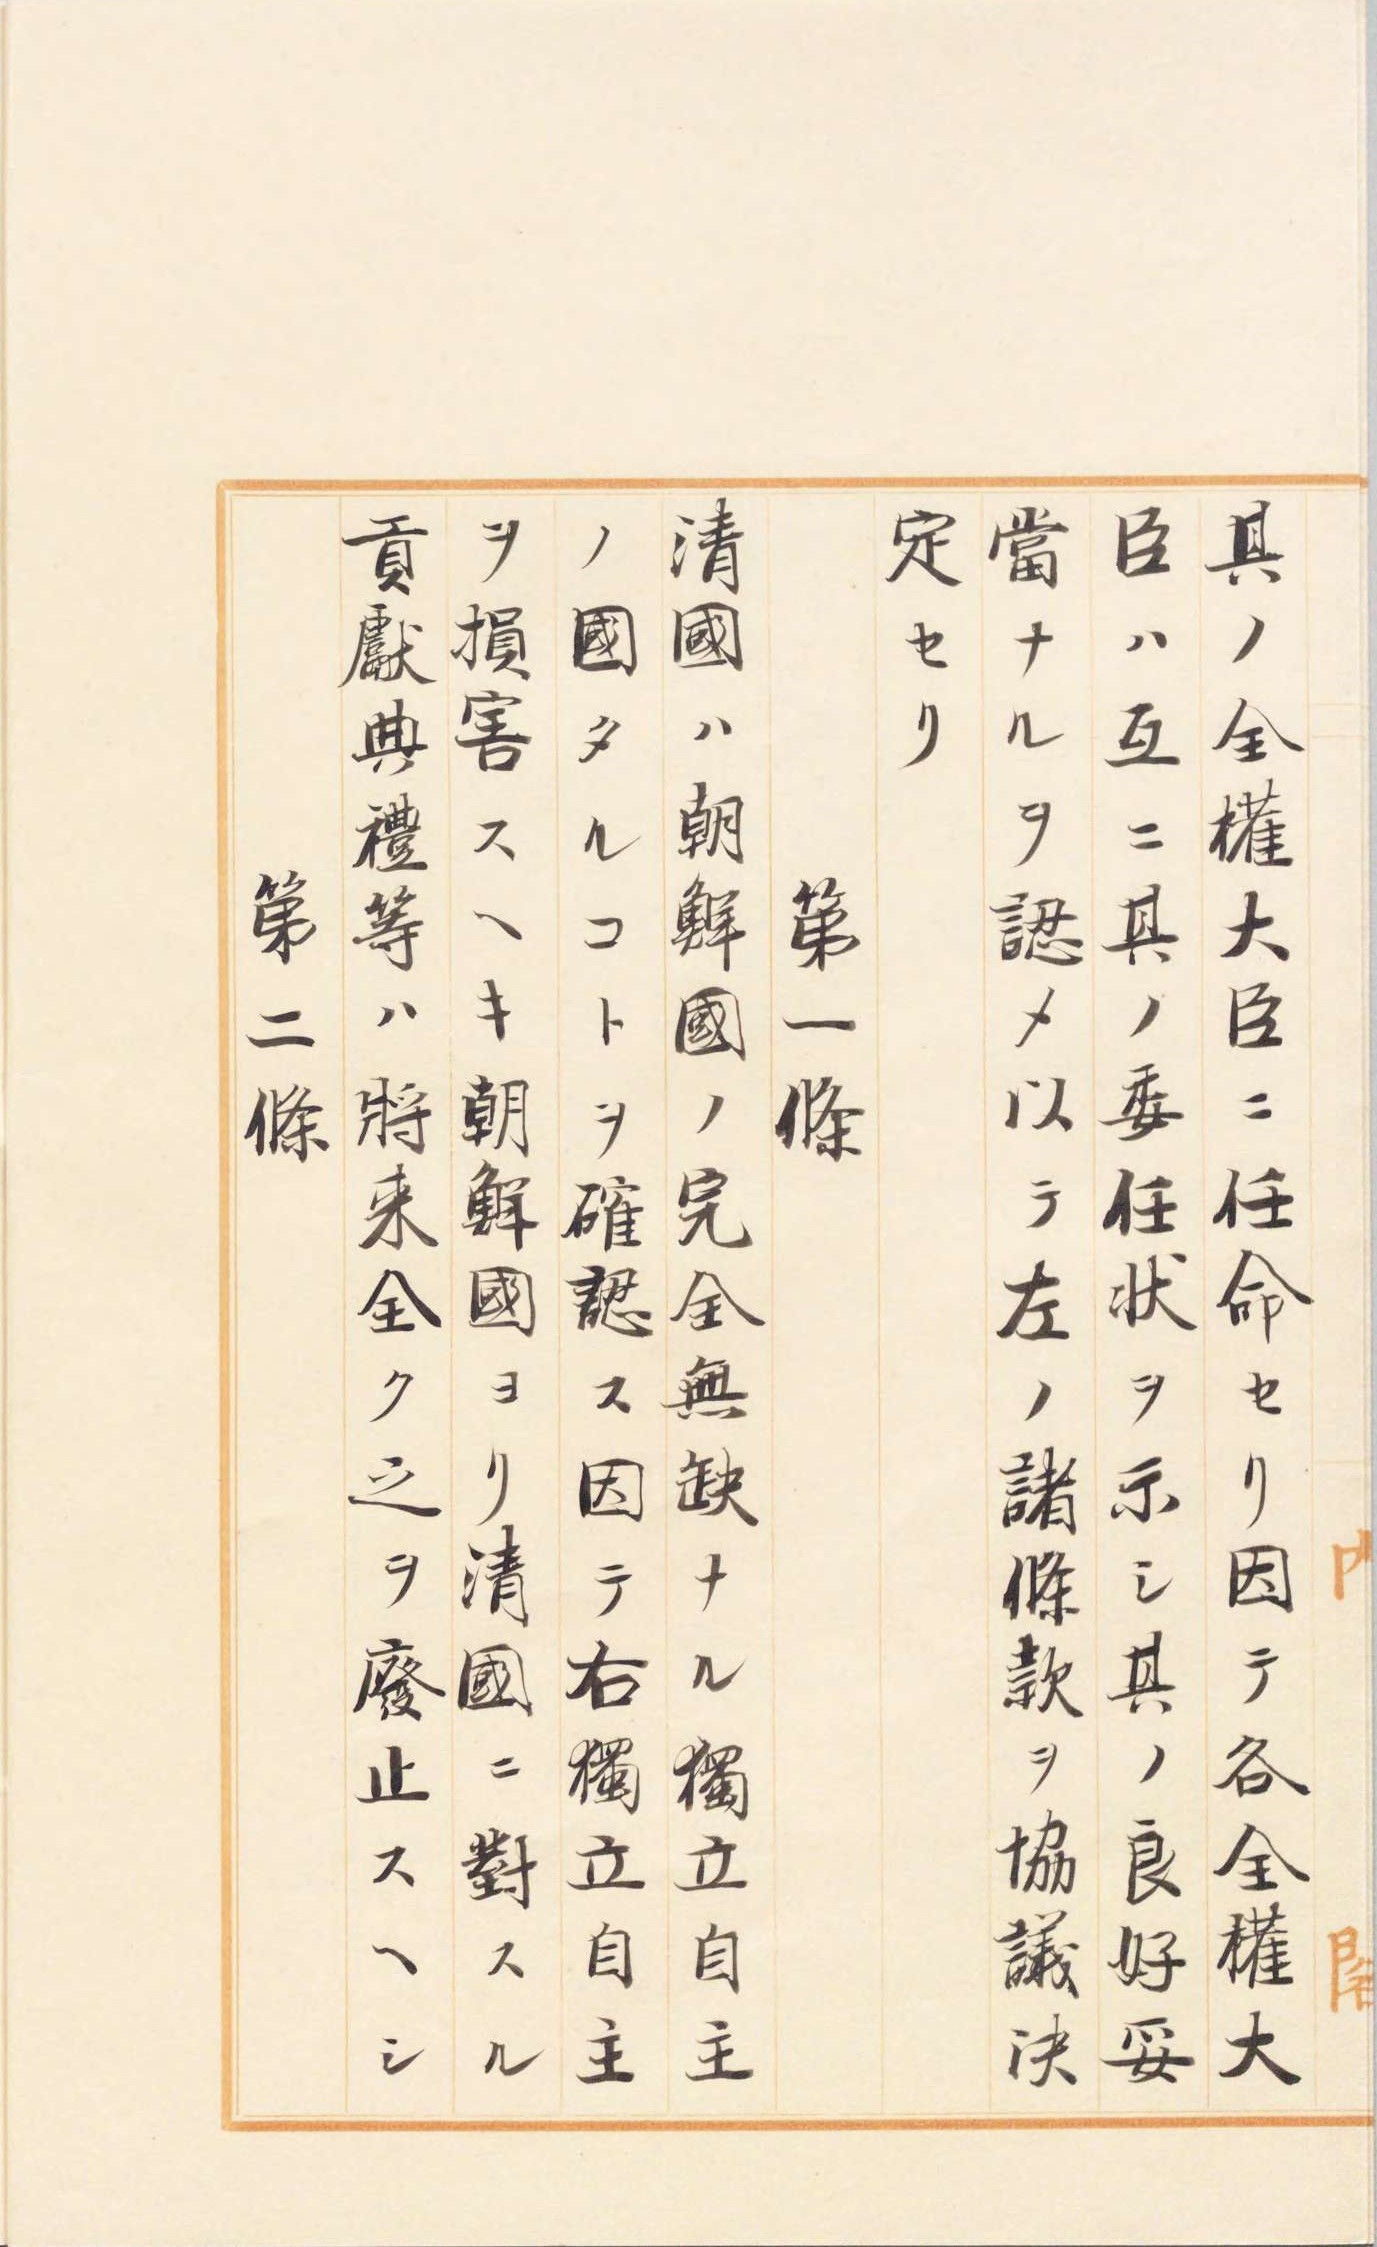 其ノ全權大臣ニ任命セリ因テ各全權大
臣ハ互ニ其ノ委任状ヲ示シ其ノ良好妥
當ナルヲ認メ以テ左ノ諸條款ヲ協議決
定セリ
第一條
清國ハ朝鮮國ノ完全無缺ナル獨立自主
ノ國タルコトヲ確認ス因テ右獨立自主
ヲ損害スヘキ朝鮮國ヨリ清國ニ對スル
貢獻典禮等ハ將来全ク之ヲ廢止スヘシ
第二條